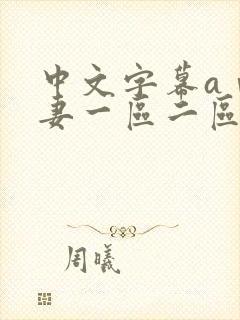 中文字幕a
妻一區二區
周曦